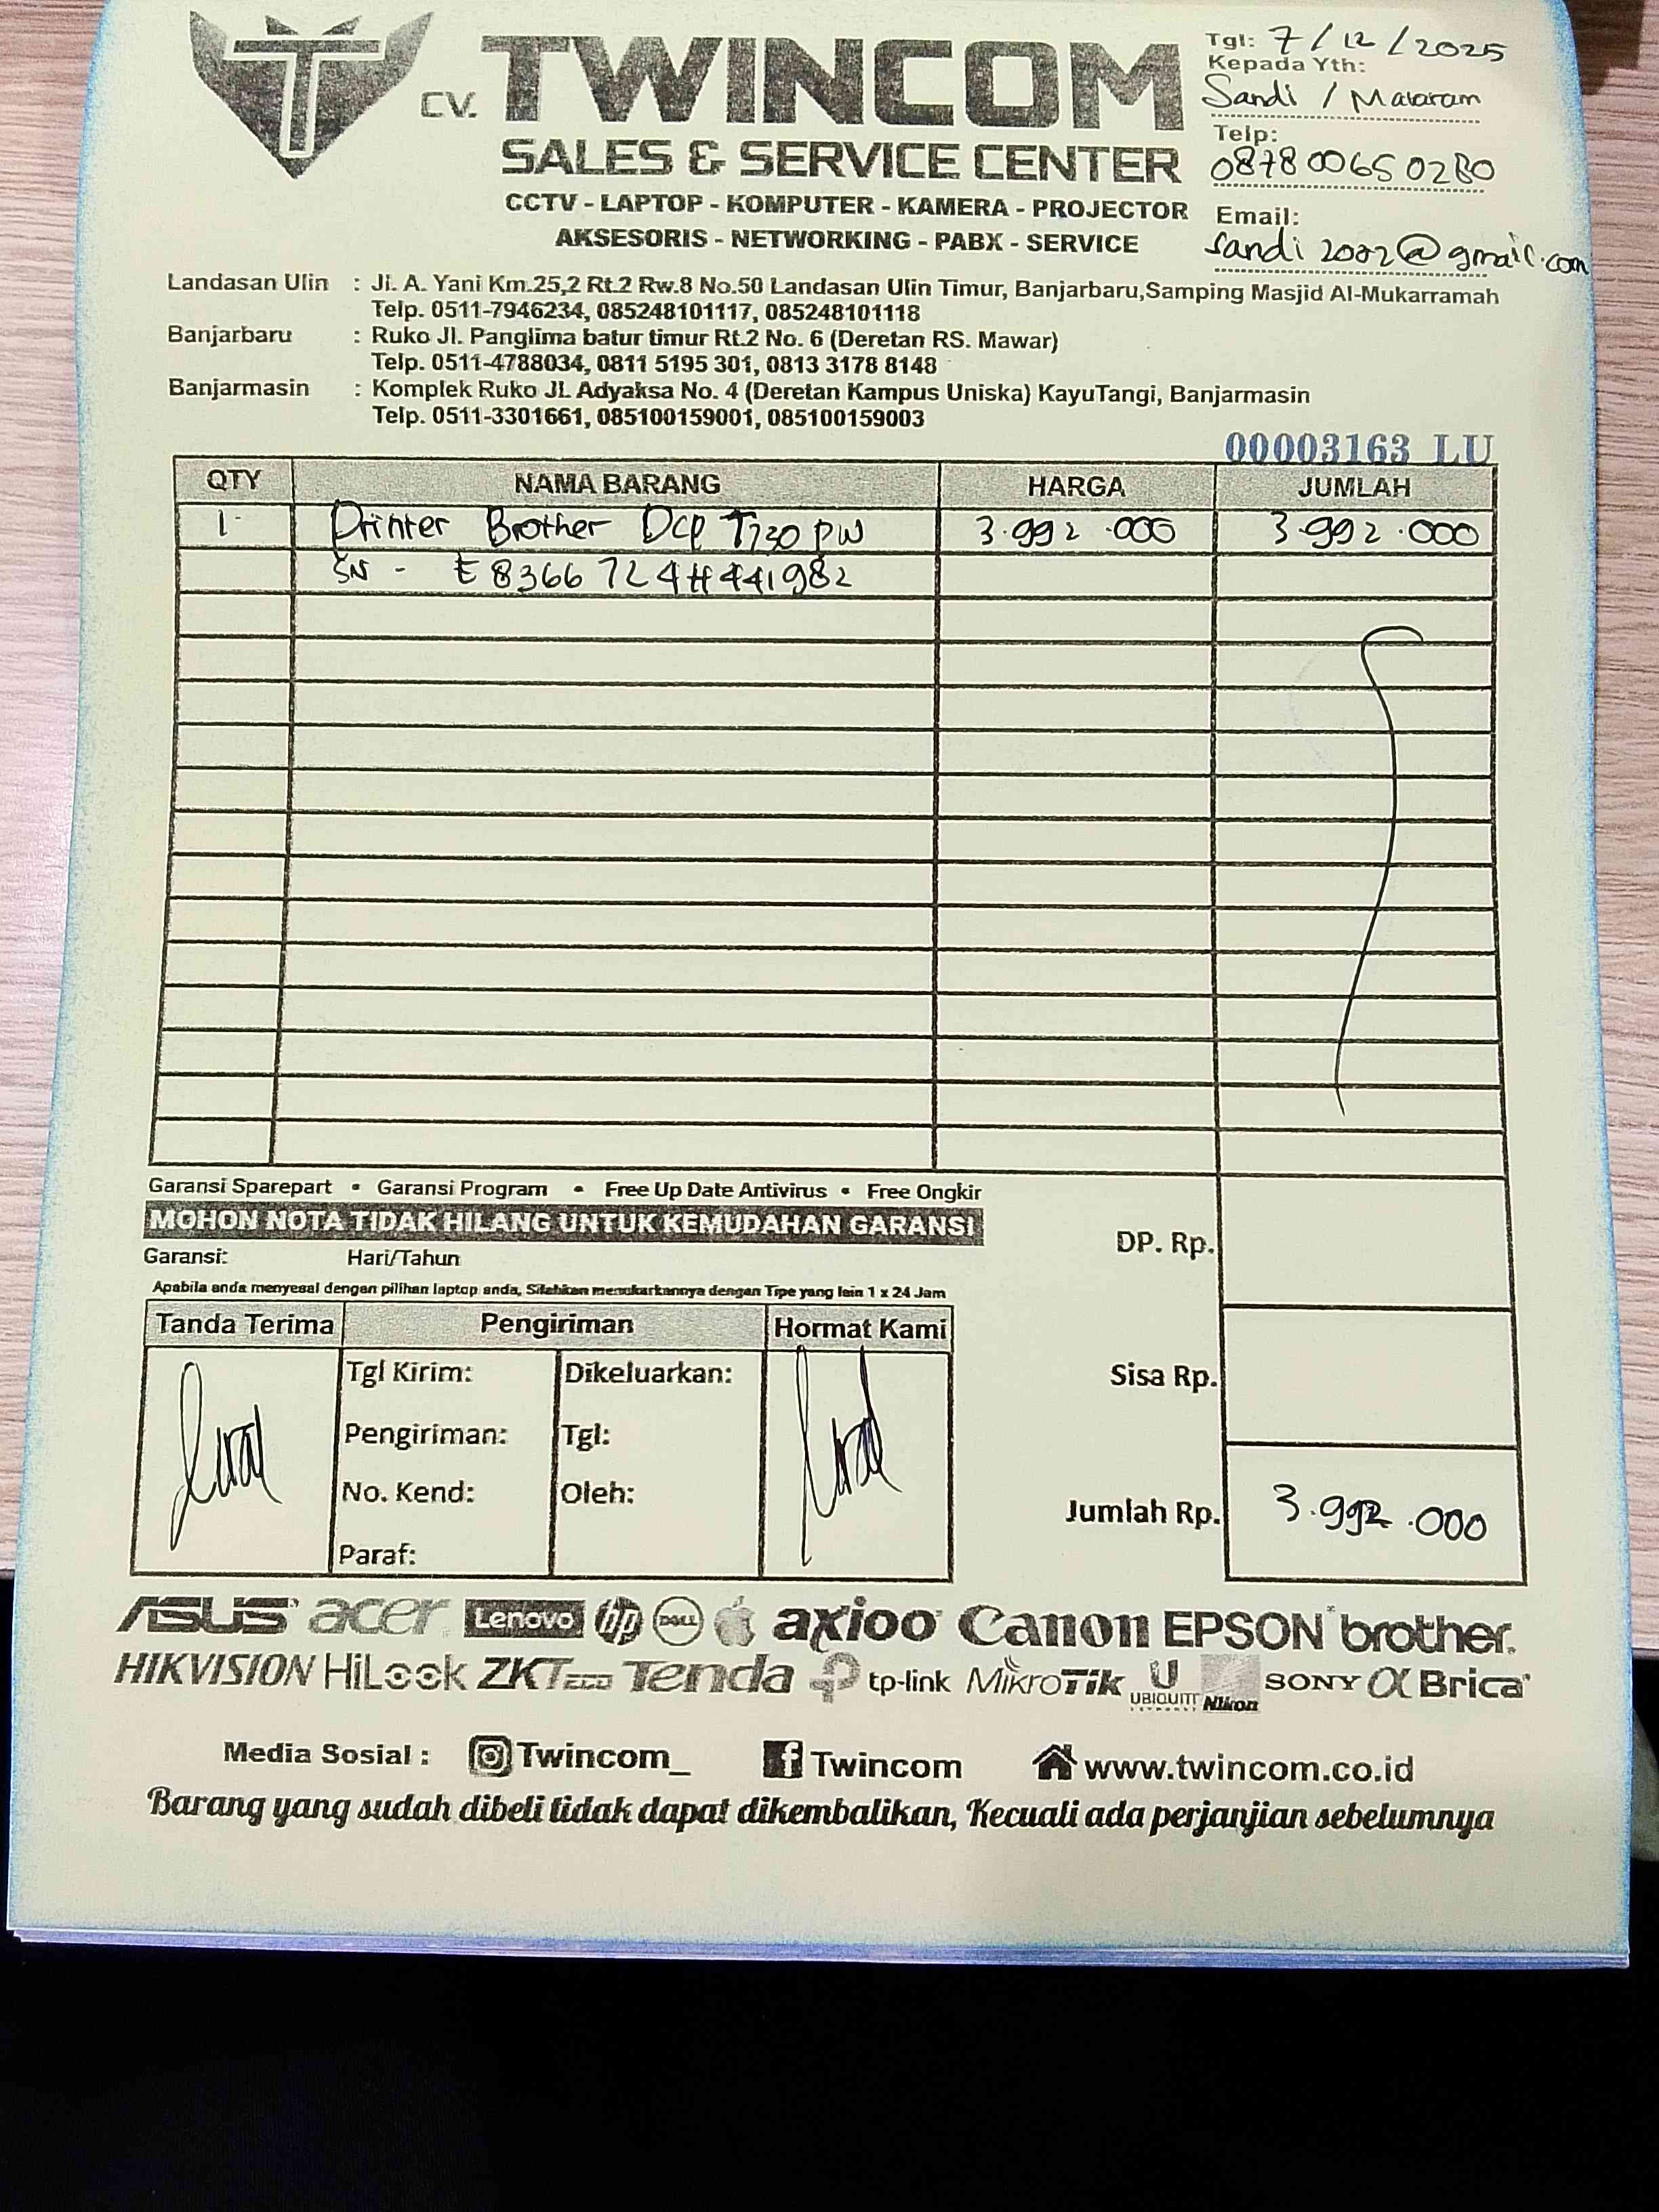 CV. TWINCOM
SALES & SERVICE CENTER
CCTV - LAPTOP - KOMPUTER - KAMERA - PROJECTOR
AKSESORIS - NETWORKING - PABX - SERVICE
Tgl: 7/12/2025
Kepada Yth:
Sandi / Mataram
Telp:
087800650280
Email:
sandi2002@gmail.com
Landasan Ulin : Jl. A. Yani Km.25,2 Rt.2 Rw.8 No.50 Landasan Ulin Timur, Banjarbaru,Samping Masjid Al-Mukarramah
Telp. 0511-7946234, 085248101117, 085248101118
Banjarbaru : Ruko Jl. Panglima batur timur Rt.2 No. 6 (Deretan RS. Mawar)
Telp. 0511-4788034, 0811 5195 301, 0813 3178 8148
Banjarmasin : Komplek Ruko Jl. Adyaksa No. 4 (Deretan Kampus Uniska) KayuTangi, Banjarmasin
Telp. 0511-3301661, 085100159001, 085100159003
00003163 LU
QTY NAMA BARANG HARGA JUMLAH
1 Printer Brother Dcp T730 PW 3.992.000 3.992.000
SN - E 8366 724H441982
Garansi Sparepart • Garansi Program • Free Up Date Antivirus • Free Ongkir
MOHON NOTA TIDAK HILANG UNTUK KEMUDAHAN GARANSI
Garansi: Hari/Tahun
Apabila anda menyesal dengan pilihan laptop anda, Silahkan menukarkannya dengan Tipe yang lain 1 x 24 Jam
DP. Rp.
Sisa Rp.
Jumlah Rp. 3.992.000
Tanda Terima Pengiriman Hormat Kami
Tgl Kirim: Dikeluarkan:
Pengiriman: Tgl:
No. Kend: Oleh:
Paraf:
ASUS acer Lenovo hp DELL axioo Canon EPSON brother.
HIKVISION HiLook ZKTeco Tenda tp-link MikroTik U UBIQUITI Nikon SONY α Brica
Media Sosial : Twincom_ Twincom www.twincom.co.id
Barang yang sudah dibeli tidak dapat dikembalikan, Kecuali ada perjanjian sebelumnya